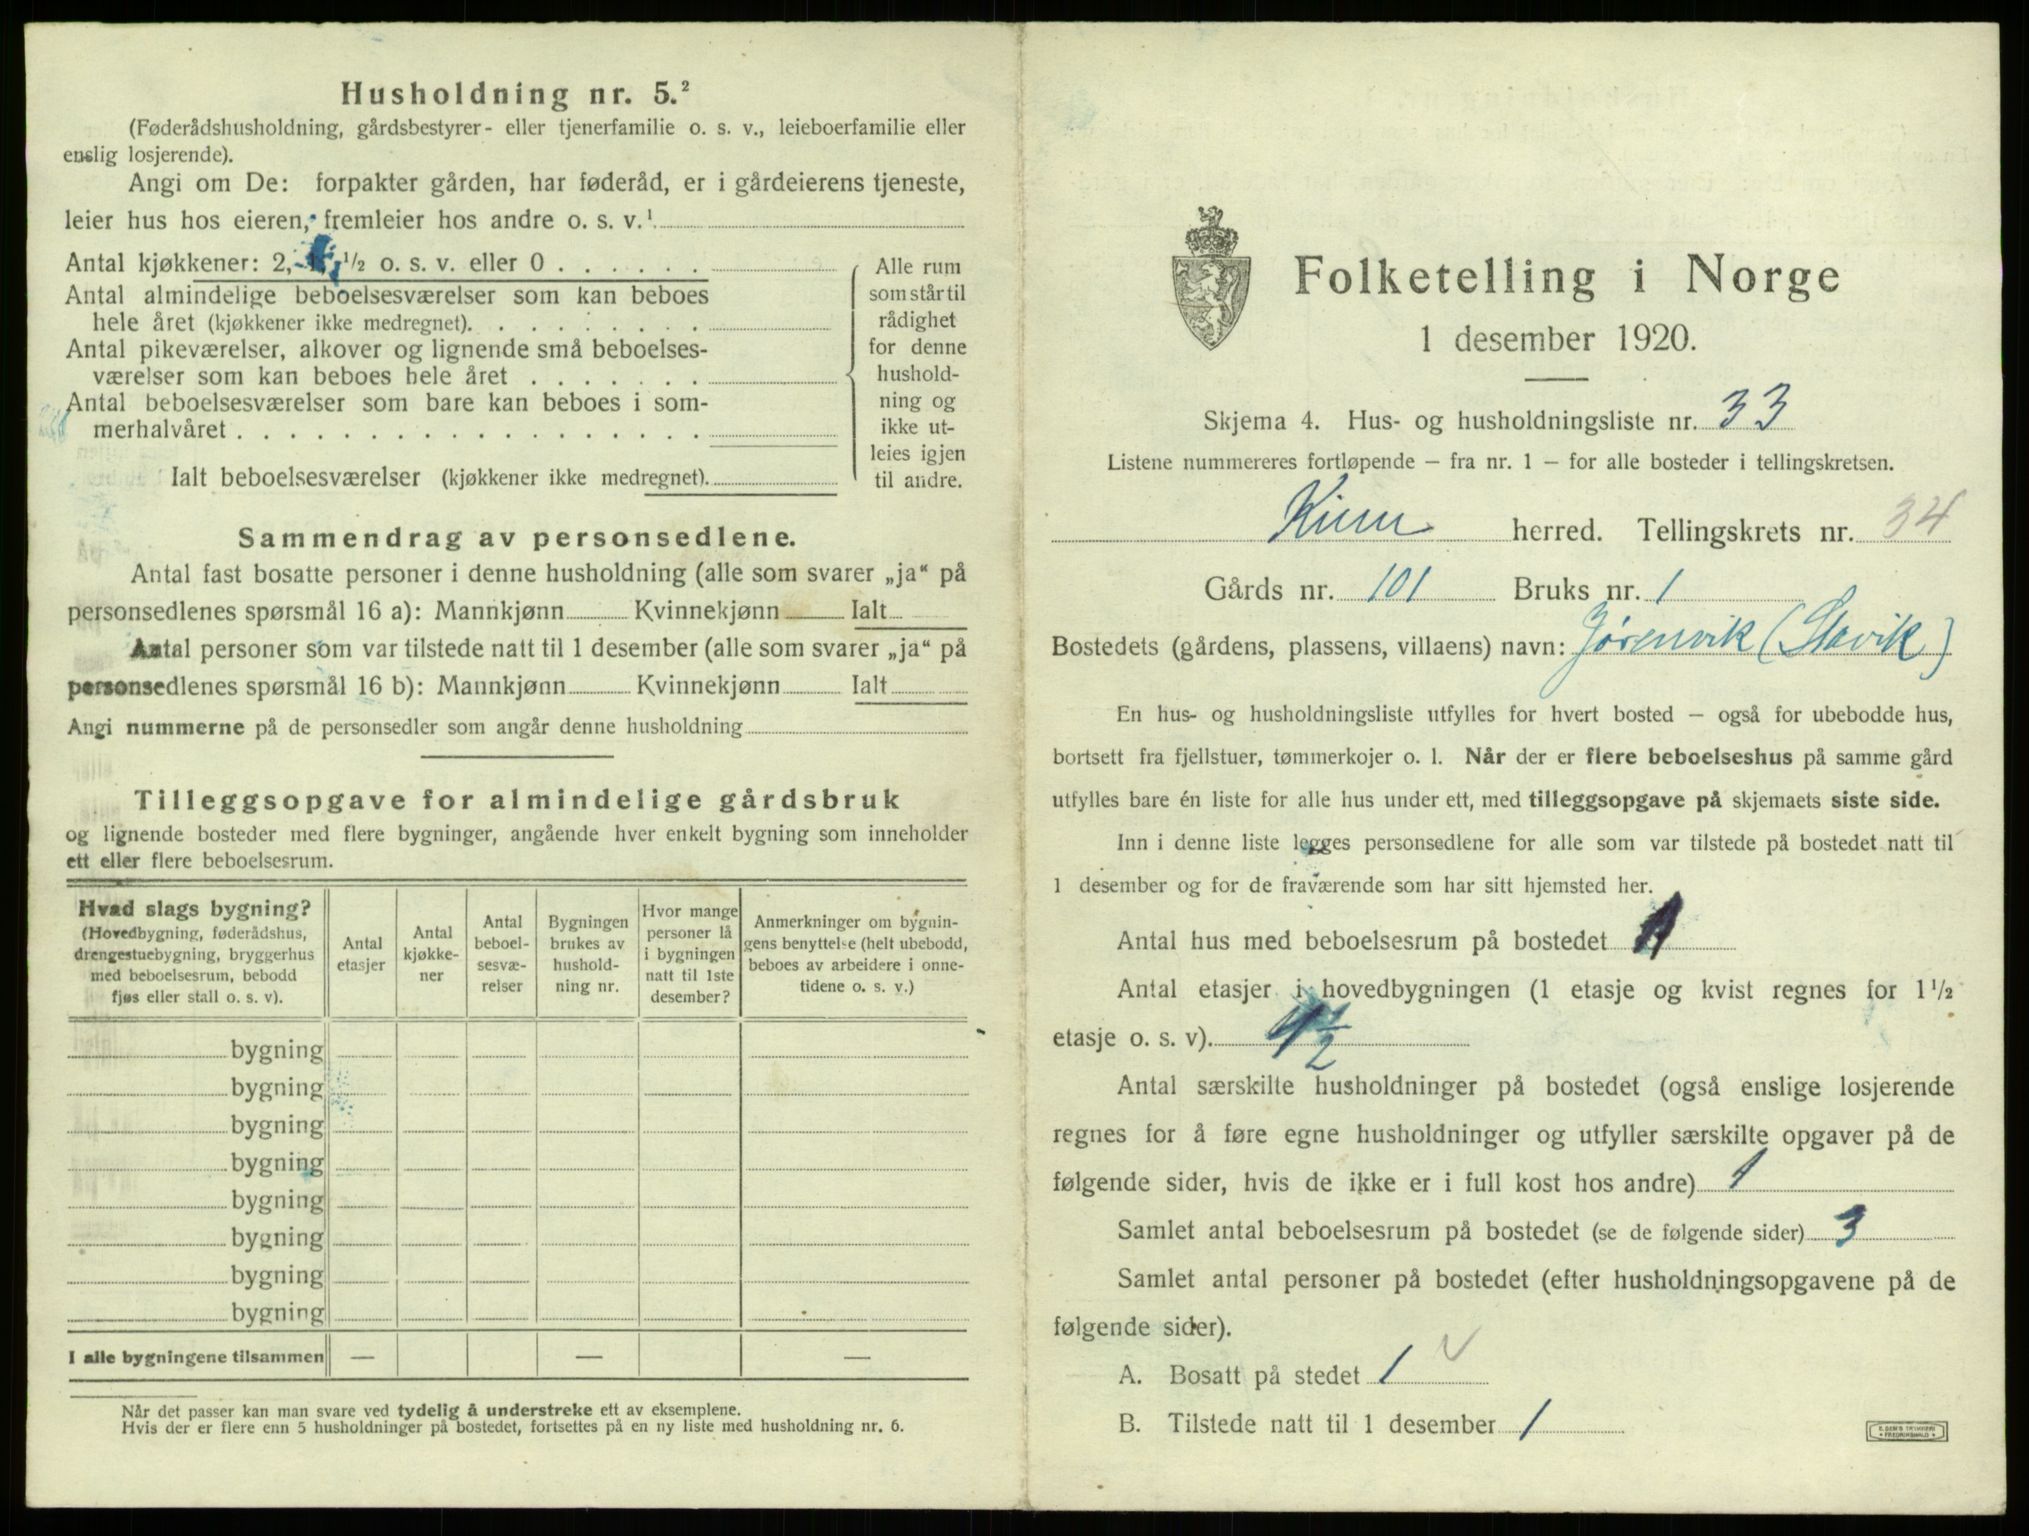 Husholdning nr. 5.²
(Føderådshusholdning, gårdsbestyrer- eller tjenerfamilie o. s. v., leieboerfamilie eller
enslig losjerende).
Angi om De: forpakter gården, har føderåd, er i gårdeierens tjeneste,
leier hus hos eieren, fremleier hos andre o. s. v.¹
Antal kjøkkener: 2, 1, ¹/₂ o. s. v. eller 0 . . . . . .
Antal almindelige beboelsesværelser som kan beboes
hele året (kjøkkener ikke medregnet). . . . . . . . .
Antal pikeværelser, alkover og lignende små beboelses-
værelser som kan beboes hele året . . . . . . .
Antal beboelsesværelser som bare kan beboes i som-
merhalvåret . . . . . . . . . . . . . . . . . .
Ialt beboelsesværelser (kjøkkener ikke medregnet).
Alle rum
som står til
rådighet
for denne
hushold-
ning og
ikke ut-
leies igjen
til andre.
Sammendrag av personsedlene.
Antal fast bosatte personer i denne husholdning (alle som svarer „ja“ på
personsedlenes spørsmål 16 a): Mannkjønn Kvinnekjønn Ialt
Antal personer som var tilstede natt til 1 desember (alle som svarer „ja“ på
personsedlenes spørsmål 16 b): Mannkjønn Kvinnekjønn Ialt
Angi nummerne på de personsedler som angår denne husholdning
Tilleggsopgave for almindelige gårdsbruk
og lignende bosteder med flere bygninger, angående hver enkelt bygning som inneholder
ett eller flere beboelsesrum.
Hvad slags bygning?
(Hovedbygning, føderådshus,
drengestuebygning, bryggerhus
med beboelsesrum, bebodd
fjøs eller stall o. s. v).
Antal
etasjer
Antal
kjøkke-
ner
Antal
beboel-
sesvæ-
relser
Bygningen
brukes av
hushold-
ning nr.
Hvor mange
personer lå
i bygningen
natt til 1ste
desember?
Anmerkninger om bygnin-
gens benyttelse (helt ubebodd,
beboes av arbeidere i onne-
tidene o. s. v.)
bygning
bygning
bygning
bygning
bygning
bygning
bygning
bygning
I alle bygningene tilsammen — — —
Når det passer kan man svare ved tydelig å understreke ett av eksemplene.
Hvis der er flere enn 5 husholdninger på bostedet, fortsettes på en ny liste med husholdning nr. 6.
Folketelling i Norge
1 desember 1920.
Skjema 4. Hus- og husholdningsliste nr. 33
Listene nummereres fortløpende – fra nr. 1 – for alle bosteder i tellingskretsen.
Kinn herred. Tellingskrets nr. 34
Gårds nr. 101 Bruks nr. 1
Bostedets (gårdens, plassens, villaens) navn: Jørenvik (Stavik)
En hus- og husholdningsliste utfylles for hvert bosted – også for ubebodde hus,
bortsett fra fjellstuer, tømmerkojer o. l. Når der er flere beboelseshus på samme gård
utfylles bare én liste for alle hus under ett, med tilleggsopgave på skjemaets siste side.
Inn i denne liste legges personsedlene for alle som var tilstede på bostedet natt til
1 desember og for de fraværende som har sitt hjemsted her.
Antal hus med beboelsesrum på bostedet 1
Antal etasjer i hovedbygningen (1 etasje og kvist regnes for 1¹/₂
etasje o. s. v). 1½
Antal særskilte husholdninger på bostedet (også enslige losjerende
regnes for å føre egne husholdninger og utfyller særskilte opgaver på de
følgende sider, hvis de ikke er i full kost hos andre) 1
Samlet antal beboelsesrum på bostedet (se de følgende sider) 3
Samlet antal personer på bostedet (efter husholdningsopgavene på de
følgende sider).
A. Bosatt på stedet 1
B. Tilstede natt til 1 desember 1